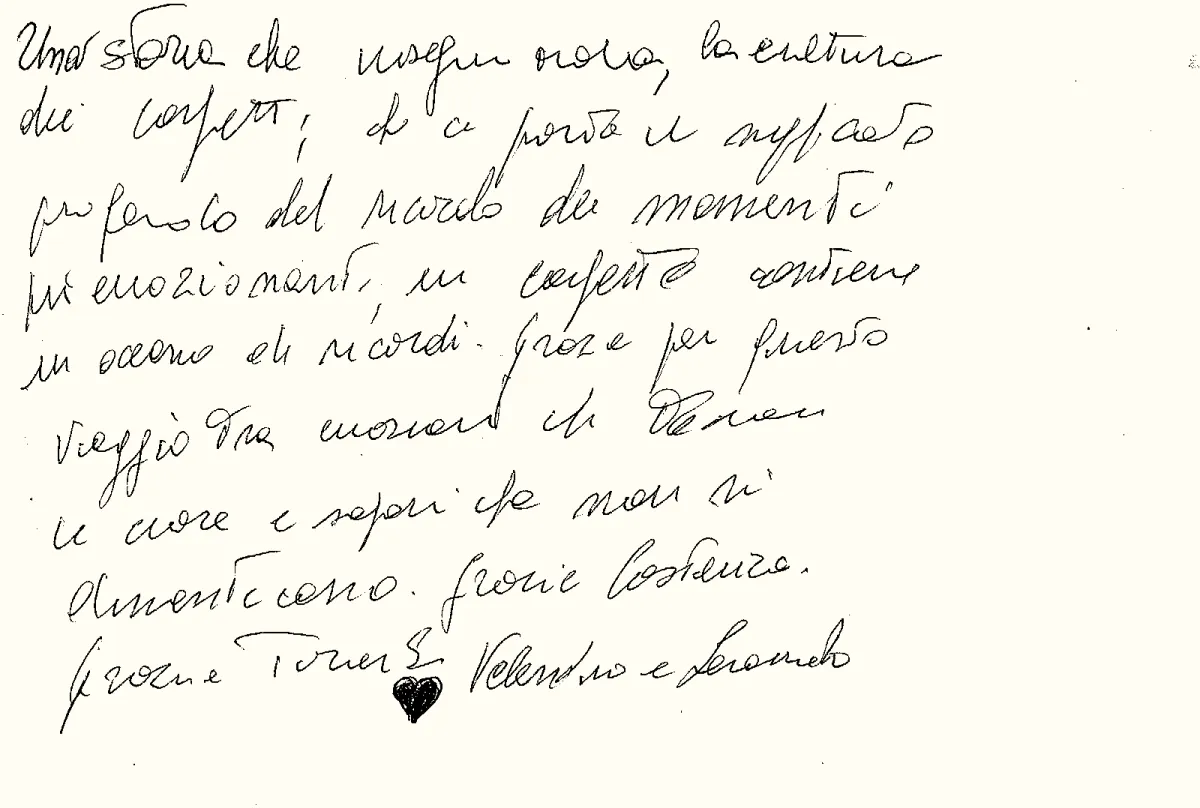 Una storia che insegna, la cultura
dei confetti, che ci porta il significato
profondo del ricordo dei momenti
più emozionanti, un confetto contiene
un oceano di ricordi. Grazie per questo
viaggio tra emozioni che
il cuore e sapori che non si
dimenticano. Grazie Costanza.
Grazie e